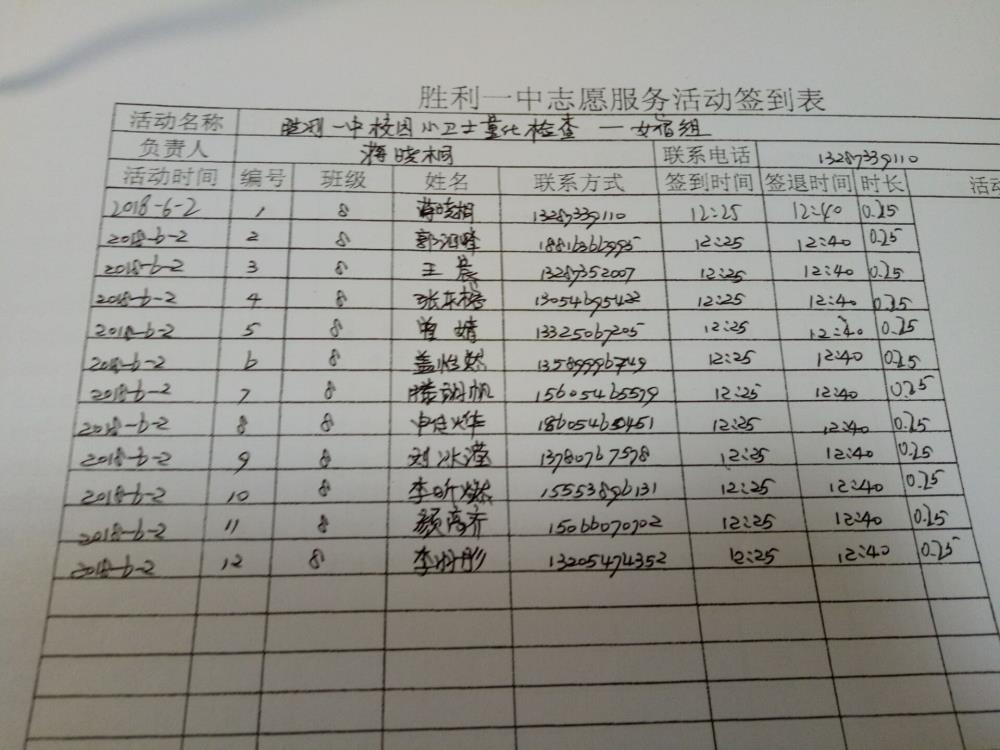 胜利一中志愿服务活动签到表
活动名称 胜利一中校园小卫士量化检查 — 女宿组
负责人 蒋晓桐 联系电话 13287339110
活动时间 编号 班级 姓名 联系方式 签到时间 签退时间 时长 活动
2018-6-2 1 8 蒋晓桐 13287339110 12:25 12:40 0.25
2018-6-2 2 8 12:25 12:40 0.25
2018-6-2 3 8 王晨 13287352007 12:25 12:40 0.25
2018-6-2 4 8 13054695422 12:25 12:40 0.25
2018-6-2 5 8 曾婧 13325067205 12:25 12:40 0.25
2018-6-2 6 8 盖怡然 13589996749 12:25 12:40 0.25
2018-6-2 7 8 15605465579 12:25 12:40 0.25
2018-6-2 8 8 18605460451 12:25 12:40 0.25
2018-6-2 9 8 刘冰滢 13780767578 12:25 12:40 0.25
2018-6-2 10 8 李昕燃 15553896131 12:25 12:40 0.25
2018-6-2 11 8 颜高齐 12:25 12:40 0.25
2018-6-2 12 8 13205474352 12:25 12:40 0.25